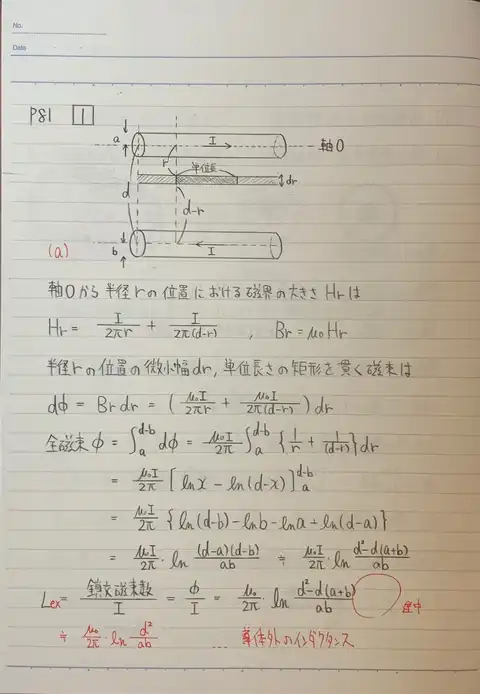 No.
Date
P81 1
a
I
軸O
r
単位長
dr
d
d-r
(a)
b
I
軸Oから半径rの位置における磁界の大きさHrは
Hr = I/2πr + I/2π(d-r) , Br = μ₀Hr
半径rの位置の微小幅dr, 単位長さの矩形を貫く磁束は
dφ = Br dr = ( μ₀I/2πr + μ₀I/2π(d-r) ) dr
全磁束 φ = ∫_a^{d-b} dφ = μ₀I/2π ∫_a^{d-b} { 1/r + 1/(d-r) } dr
= μ₀I/2π [ ln x - ln (d-x) ]_a^{d-b}
= μ₀I/2π { ln (d-b) - ln b - ln a + ln (d-a) }
= μ₀I/2π · ln (d-a)(d-b)/ab ≒ μ₀I/2π · ln d²-d(a+b)/ab
Lex = 鎖交磁束数/I = φ/I = μ₀/2π · ln d²-d(a+b)/ab
≒ μ₀/2π · ln d²/ab … 導体外のインダクタンス